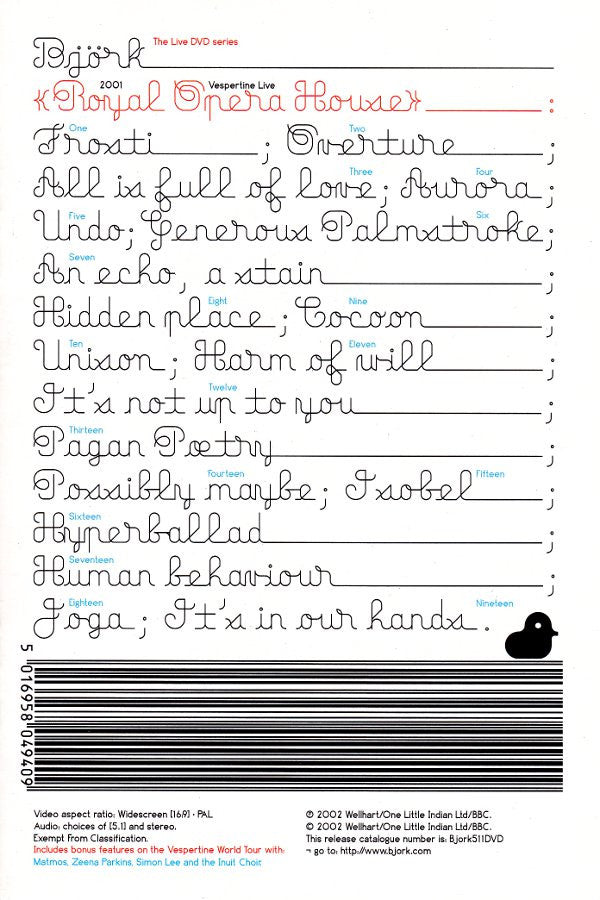 Björk The Live DVD series
2001 Vespertine Live
«Royal Opera House» :
One Two
Frosti ; Overture ;
Three Four
All is full of love; Aurora ;
Five Six
Undo; Generous Palmstroke;
Seven
An echo, a stain ;
Eight Nine
Hidden place ; Cocoon ;
Ten Eleven
Unison ; Harm of will ;
Twelve
It's not up to you ;
Thirteen
Pagan Poetry ;
Fourteen Fifteen
Possibly maybe; Isobel ;
Sixteen
Hyperballad ;
Seventeen
Human behaviour ;
Eighteen Nineteen
Joga ; It's in our hands .
5 016958 049409
Video aspect ratio: Widescreen [16.9] · PAL
Audio: choices of [5.1] and stereo.
Exempt From Classification.
Includes bonus features on the Vespertine World Tour with:
Matmos, Zeena Parkins, Simon Lee and the Inuit Choir
℗ 2002 Wellhart/One Little Indian Ltd/BBC.
© 2002 Wellhart/One Little Indian Ltd/BBC.
This release catalogue number is: Bjork511DVD
¬ go to: http://www.bjork.com